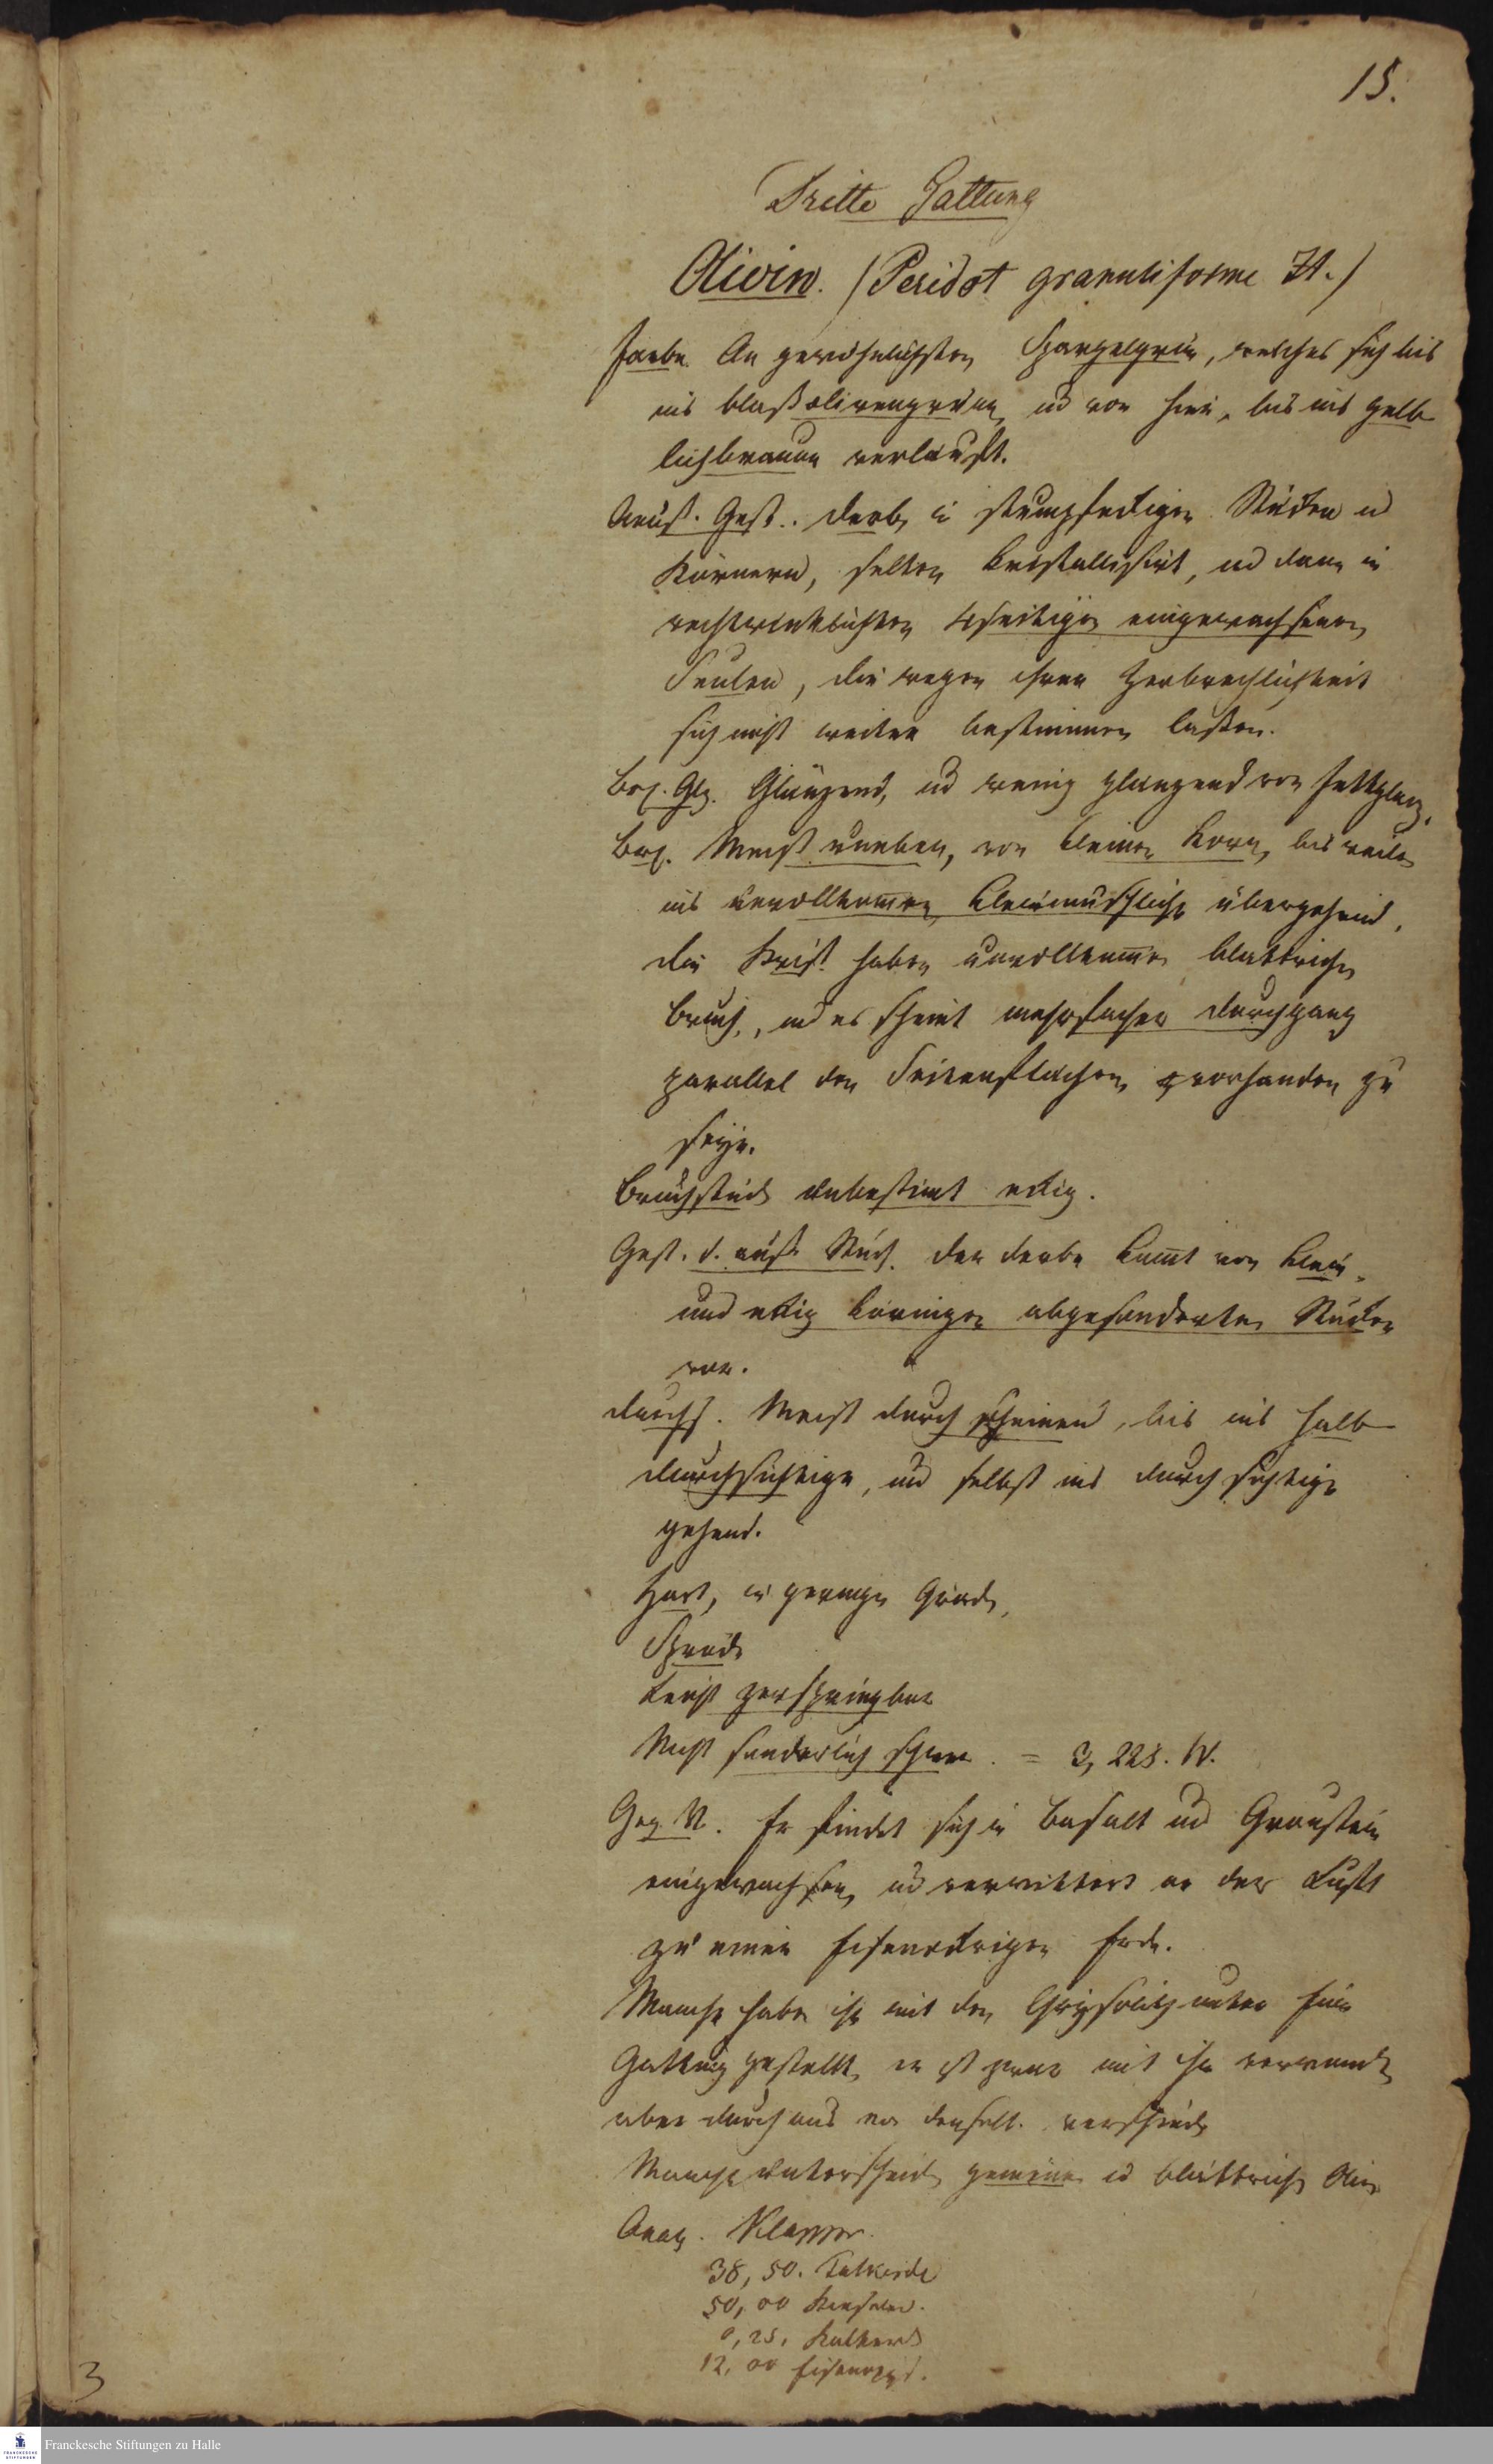 15.
Dritte Gattung
Olivin. (Peridot granuliforme H.)
Farbe. Am gewöhnlichsten Spargelgrün, welches sich bis
ins blaß olivengrüne, und von hier, bis ins gelb
lichbraune verläuft.
Aeuß. Gest.. derb, in stumpfeckigen Stücken u
Körnern, selten kristallisirt, und dann in
rechtwinklichten 4seitigen eingewachsenen
Seulen, die wegen ihrer Zerbrechlichkeit
sich nicht weiter bestimmen lassen.
Br. Glz. Glänzend, und wenig glänzend von Fettglanz.
Br. Meist uneben, von kleinen Korn, bisweilen
ins unvollkomen kleinmuschliche übergehend,
die Krist. haben unvollkomen blättrichen
Bruch, und es scheint mehrfacher Durchgang
parallel den Seitenflächen vorhanden zu
seyn.
Bruchstück unbestimt eckig.
Gest. d. Stück. der derbe komt von klein
und eckig körnigen abgesonderten Stücken
vor.
durchs. Meist durchscheinend, bis ins halb
durchsichtige, und selbst ins durchsichtige
gehend.
Hart, in geringen Grade,
Spröde
Leicht zerspringbar
Nicht sonderlich schwer. = 3,225. W.
Geg. V. Er findet sich in Basalt und Graustein
eingewachsen, und verwittert an der Luft
zu einer Eisenockrigen Erde.
Manche haben ihn mit den Chrysolith unter eine
Gattung gestellt, er ist zwar mit ihm verwandt,
aber durchaus von denselb. verschieden
Manche unterscheiden gemeinen u blättrichen Oliv.
Anal. Klappr.
38,50. Talkerde
50,00 Kieseler.
0,25. Kalkerde
12,00 Eisenoxyd.
3
FRANCKESCHE STIFTUNGEN
Franckesche Stiftungen zu Halle